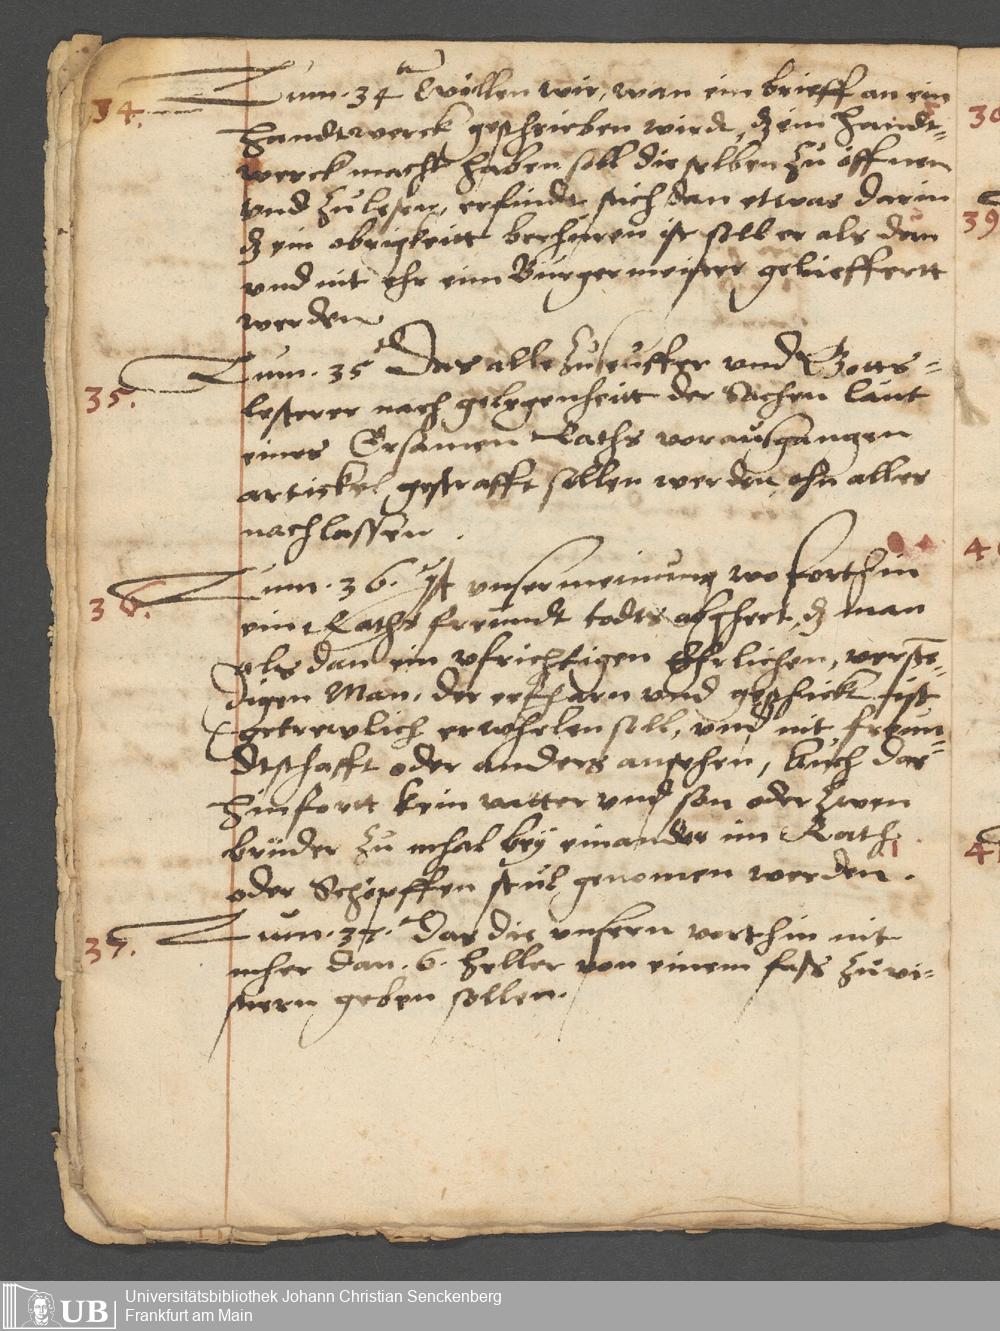 34.
Zum. 34 Wöllen wir, wan ein brieff an ein
handtwerck geschrieben wirdt, dz ein handt=
werck macht haben soll dieselben zu öffnen
vnd zu lesen, erfindt sich dan etwas darin
dz ein obrigkeitt berhüren ist soll er als dan
vnd nit ehr eim Bürgermeister gelieffertt
werden
35.
Zum. 35 Das alle Zuseuffer vnd Gotts=
lesterer nach gelegenheitt der Sachen laut
eines Ersamen Raths vorausgangen
artickel gestrafft sollen werden ohn alles
nachlassen.
36.
Zum. 36. Ist vnser meinung wo forthin
ein Raths freundt todts abghert, dz man
als dan ein vfrichtigen Ehrlichen, verstē=
digen Man, der erfharn vnd geschickt ist
getrewlich erwehlen soll, vnd nit freun=
dtschafft oder anders ansehen, Auch das
hinfortt kein vatter vnd son oder zwen
brüder zu mhal bey einander im Rath
oder Schöpffen stül genomen werden.
37.
Zum. 37. Das die vnsern vorthin nit
mher dan. 6. heller von einem fass zu vi=
siern geben sollen.
39
41
UB
Universitätsbibliothek Johann Christian Senckenberg
Frankfurt am Main